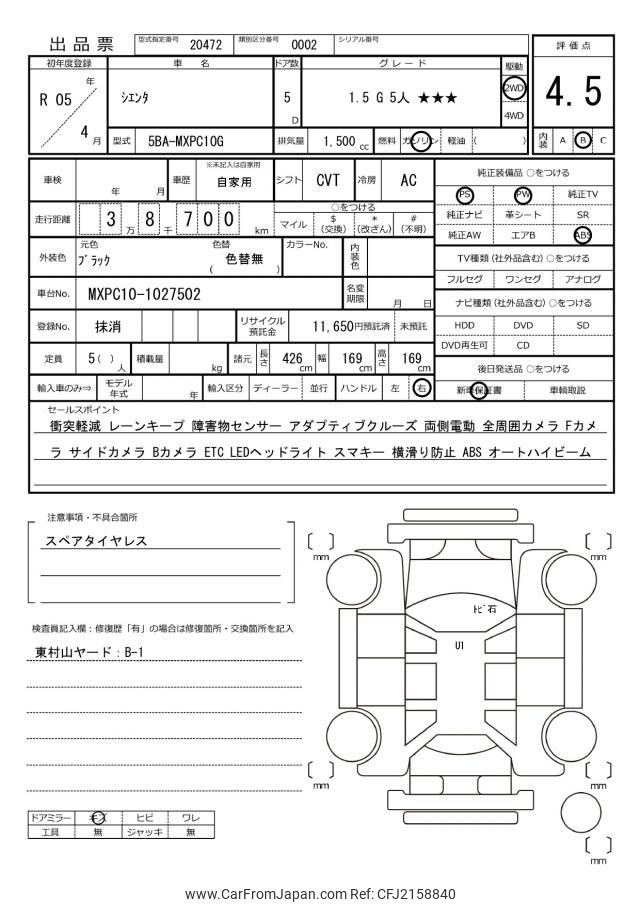 出品票 型式指定番号 20472 類別区分番号 0002 シリアル番号
評価点
4.5
内装 A B C
初年度登録 車名 ドア数 グレード 駆動
R 05 年 4 月 シエンタ 5 D 1.5 G 5人 ★★★ 2WD 4WD
型式 5BA-MXPC10G 排気量 1,500 cc 燃料 ガソリン 軽油 ( )
車検 年 月 車歴 ※未記入は自家用 自家用 シフト CVT 冷房 AC
走行距離 3 8 7 0 0 万 千 km ○をつける
マイル $ (交換) * (改ざん) # (不明)
外装色 元色 ブラック 色替 ( 色替無 ) カラーNo. 内装色
車台No. MXPC10-1027502 名変期限 月 日
登録No. 抹消 リサイクル預託金 11,650円預託済 未預託
定員 5 ( ) 人 積載量 kg 諸元 長さ 426 cm 幅 169 cm 高さ 169 cm
輸入車のみ⇒ モデル年式 年 輸入区分 ディーラー 並行 ハンドル 左 右
純正装備品 ○をつける
PS PW 純正TV
純正ナビ 革シート SR
純正AW エアB ABS
TV種類(社外品含む) ○をつける
フルセグ ワンセグ アナログ
ナビ種類(社外品含む) ○をつける
HDD DVD SD
DVD再生可 CD
後日発送品 ○をつける
新車保証書 車輌取説
セールスポイント
衝突軽減 レーンキープ 障害物センサー アダプティブクルーズ 両側電動 全周囲カメラ Fカメ
ラ サイドカメラ Bカメラ ETC LEDヘッドライト スマキー 横滑り防止 ABS オートハイビーム
注意事項・不具合箇所
スペアタイヤレス
検査員記入欄：修復歴「有」の場合は修復箇所・交換箇所を記入
東村山ヤード：B-1
ドアミラー キズ ヒビ ワレ
工具 無 ジャッキ 無
mm
mm
トビ石
U1
mm
mm
mm
www.CarFromJapan.com Ref: CFJ2158840